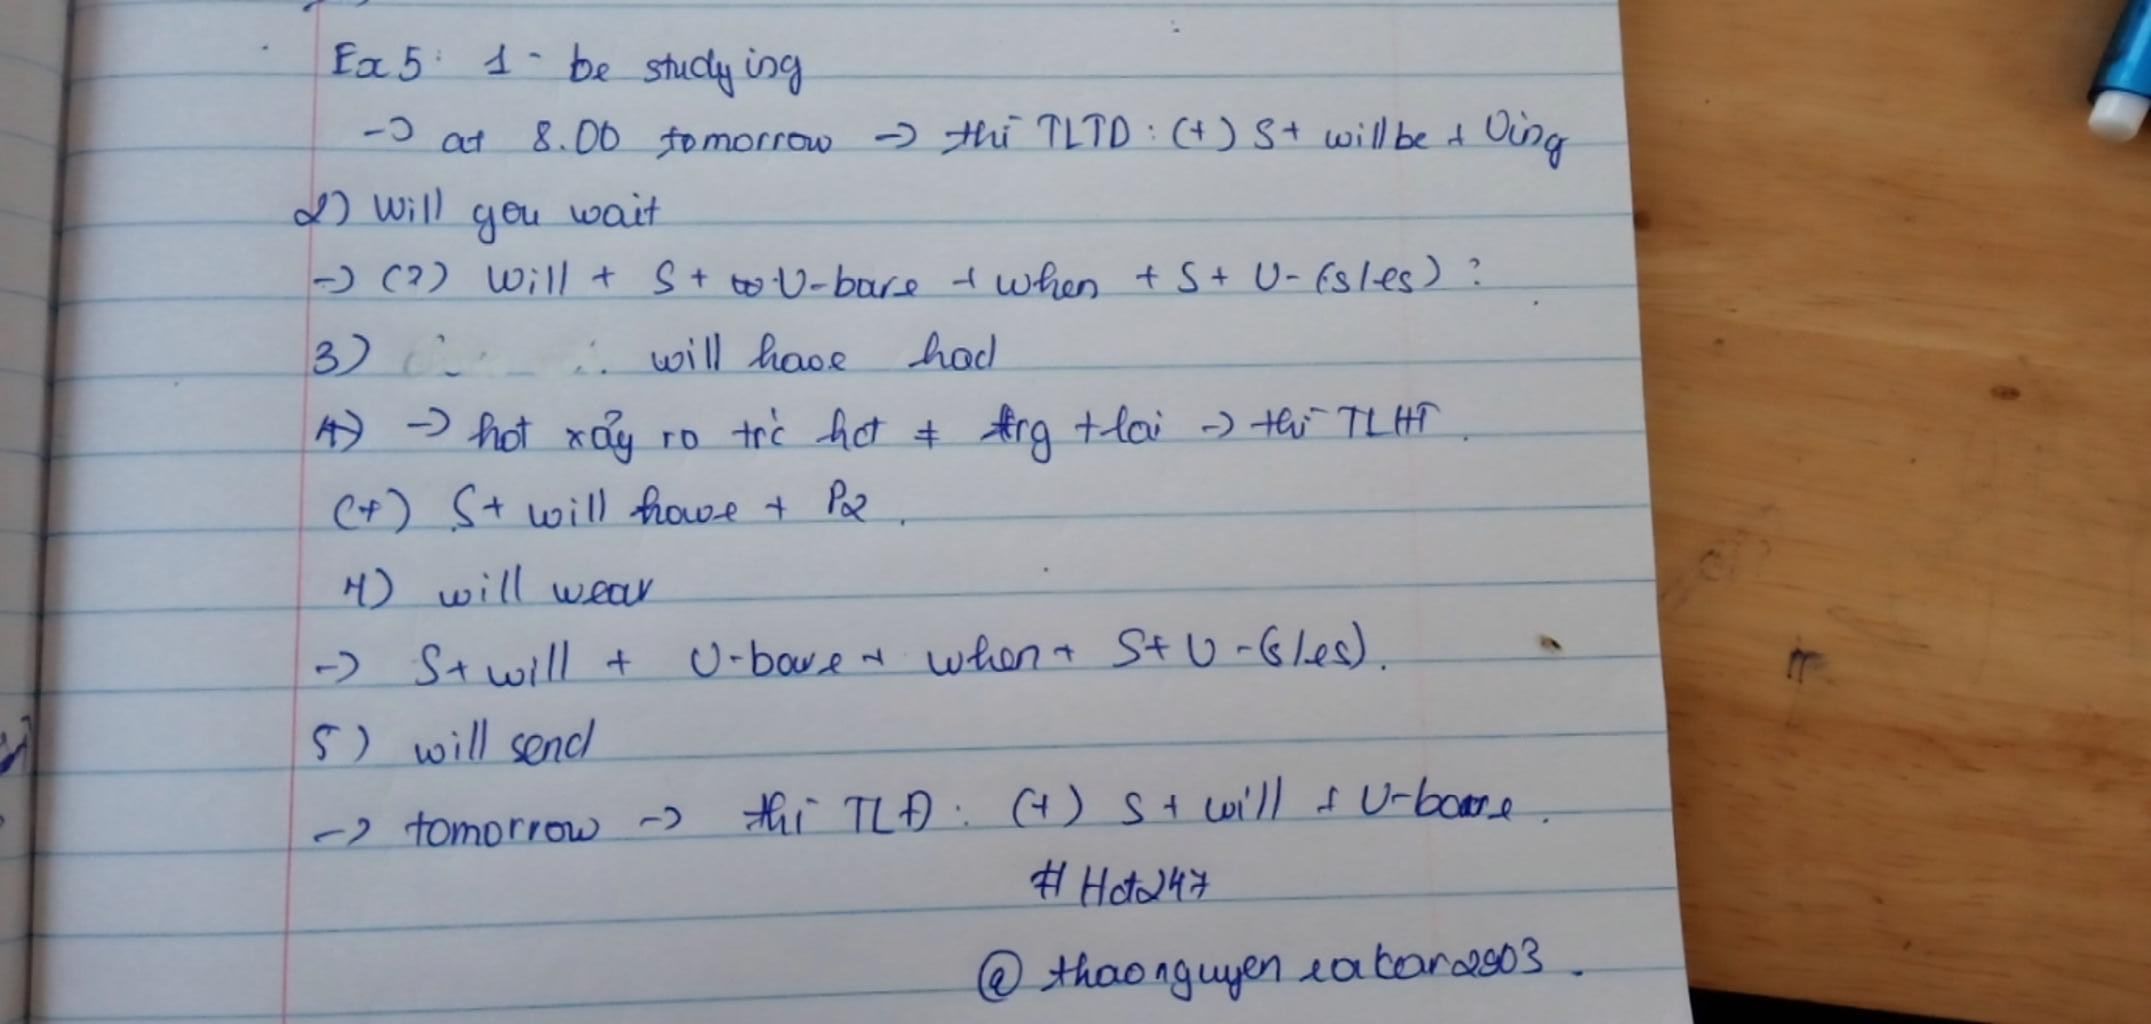 Ex 5: 1 - be studying
-> at 8.00 tomorrow -> thì TLTD: (+) S + will be + Ving
2) Will you wait
-> (?) Will + S + V-bare + when + S + V-(s/es)?
3) will have had
-> hđt xảy ra trc hđt ≠ trg tlai -> thì TLHT.
(+) S + will have + P2.
4) will wear
-> S + will + V-bare + when + S + V-(s/es).
5) will send
-> tomorrow -> thì TLĐ: (+) S + will + V-bare.
# Hdt247
@ thaonguyen eakar2903.